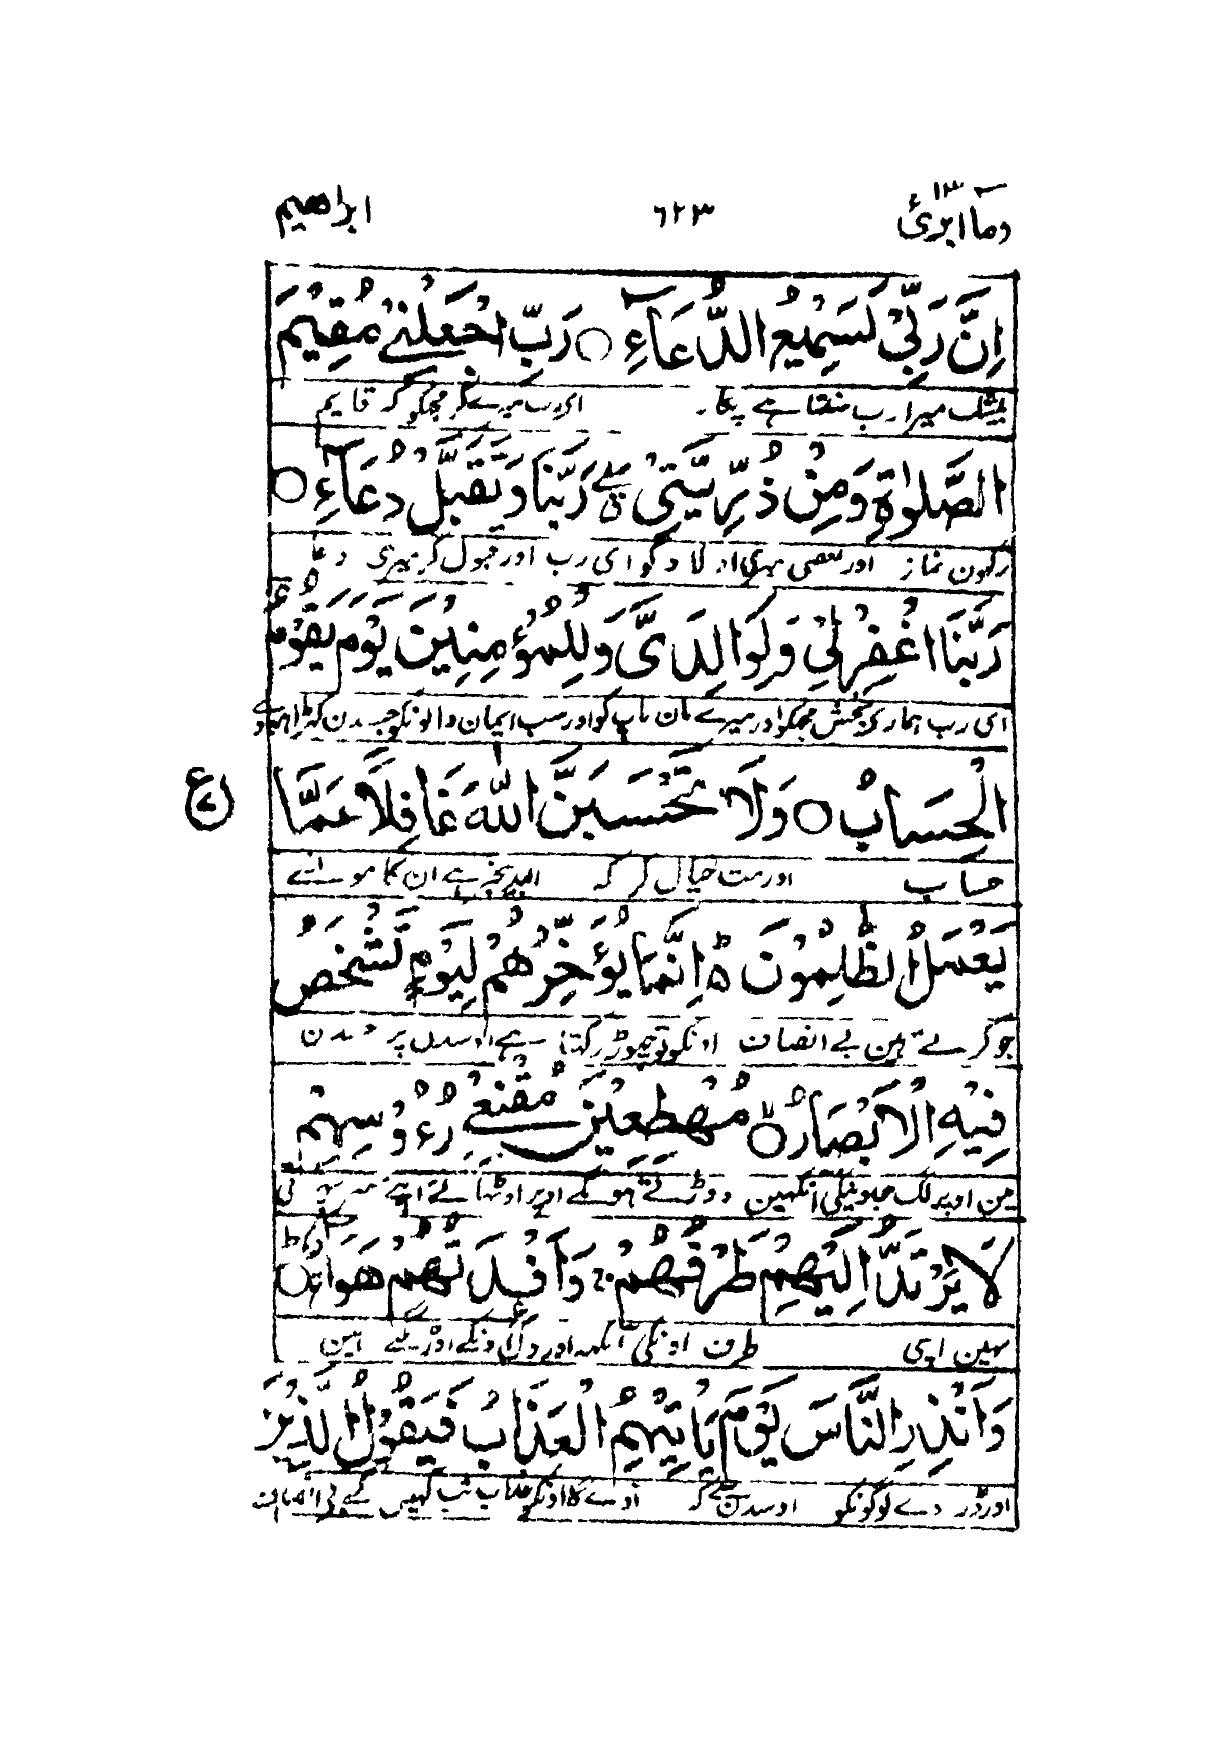 ابراهيم ٦٢٣ وما ابرئ ١٣
اِنَّ رَبِّيْ لَسَمِيْعُ الدُّعَآءِ ○ رَبِّ اجْعَلْنِيْ مُقِيْمَ
بیشک میرا رب سنتا ہے پکار۔ ای رب میرے کر مجکو کہ قایم
الصَّلٰوةِ وَمِنْ ذُرِّيَّتِيْ رَبَّنَا وَتَقَبَّلْ دُعَآءِ ○
رکہون نماز اور بعضی میری اولاد کو ای رب اور قبول کر میری دعا
رَبَّنَا اغْفِرْ لِيْ وَلِوَالِدَيَّ وَلِلْمُؤْمِنِيْنَ يَوْمَ يَقُوْمُ
ای رب ہماری بخش مجکو اور میرے مان باپ کو اور سب ایمان والونکو جسدن کہڑا ہووے
الْحِسَابُ ○ وَلَا تَحْسَبَنَّ اللّٰهَ غَافِلًا عَمَّا
حساب اور مت خیال کر کہ اللہ بیخبر ہے ان کامو سے
ع
يَعْمَلُ الظّٰلِمُوْنَ ە اِنَّمَا يُؤَخِّرُهُمْ لِيَوْمٍ تَشْخَصُ
جو کرتے ہین بے انصاف اونکو تو چہوڑ رکہتا ہے اوسدن پر جسدن
فِيْهِ الْاَبْصَارُ ○ مُهْطِعِيْنَ مُقْنِعِيْ رُءُوْسِهِمْ
مین اوپر لگ جاوینگی آنکہین دوڑتے ہونگے اوپر اوٹہائے اپنے سر
لَا يَرْتَدُّ اِلَيْهِمْ طَرْفُهُمْ وَاَفْـِٕدَتُهُمْ هَوَآءٌ ○
نہین اپنی طرف اونکی آنکہہ اور دل اونکے اوڑ گئے ہین
وَاَنْذِرِ النَّاسَ يَوْمَ يَاْتِيْهِمُ الْعَذَابُ فَيَقُوْلُ الَّذِيْنَ
اور ڈر دے لوگونکو اوسدن سے کہ آوے گا اونکو عذاب تب کہیں گے بی انصاف